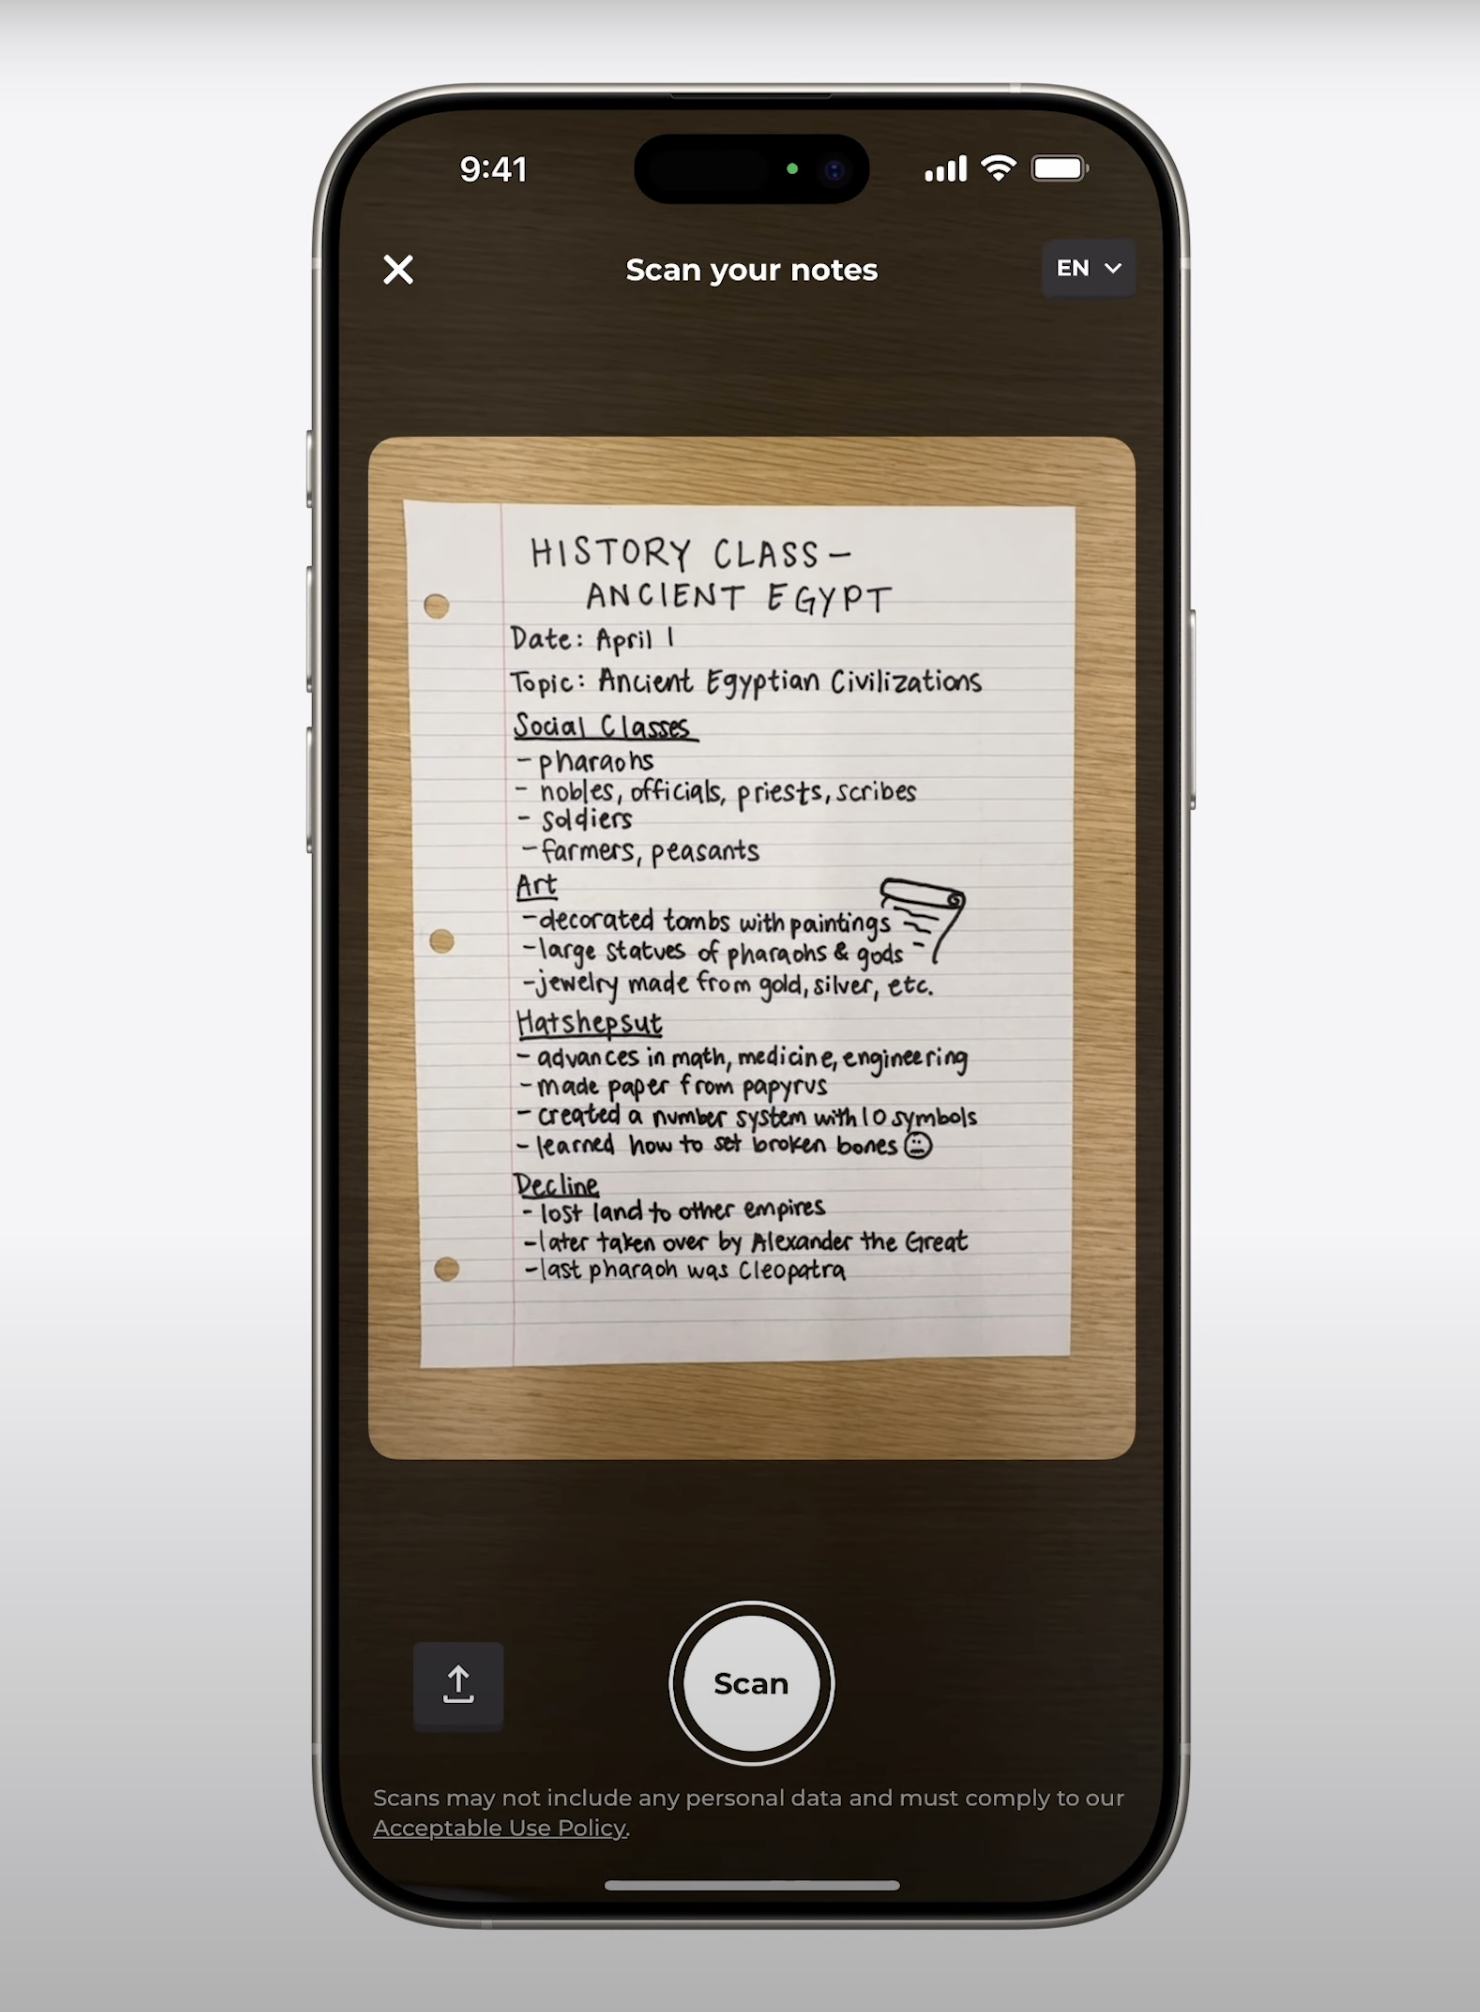 9:41
Scan your notes
EN
HISTORY CLASS –
ANCIENT EGYPT
Date: April 1
Topic: Ancient Egyptian Civilizations
Social Classes
- pharaohs
- nobles, officials, priests, scribes
- soldiers
- farmers, peasants
Art
- decorated tombs with paintings
- large statues of pharaohs & gods
- jewelry made from gold, silver, etc.
Hatshepsut
- advances in math, medicine, engineering
- made paper from papyrus
- created a number system with 10 symbols
- learned how to set broken bones
Decline
- lost land to other empires
- later taken over by Alexander the Great
- last pharaoh was Cleopatra
Scan
Scans may not include any personal data and must comply to our
Acceptable Use Policy.